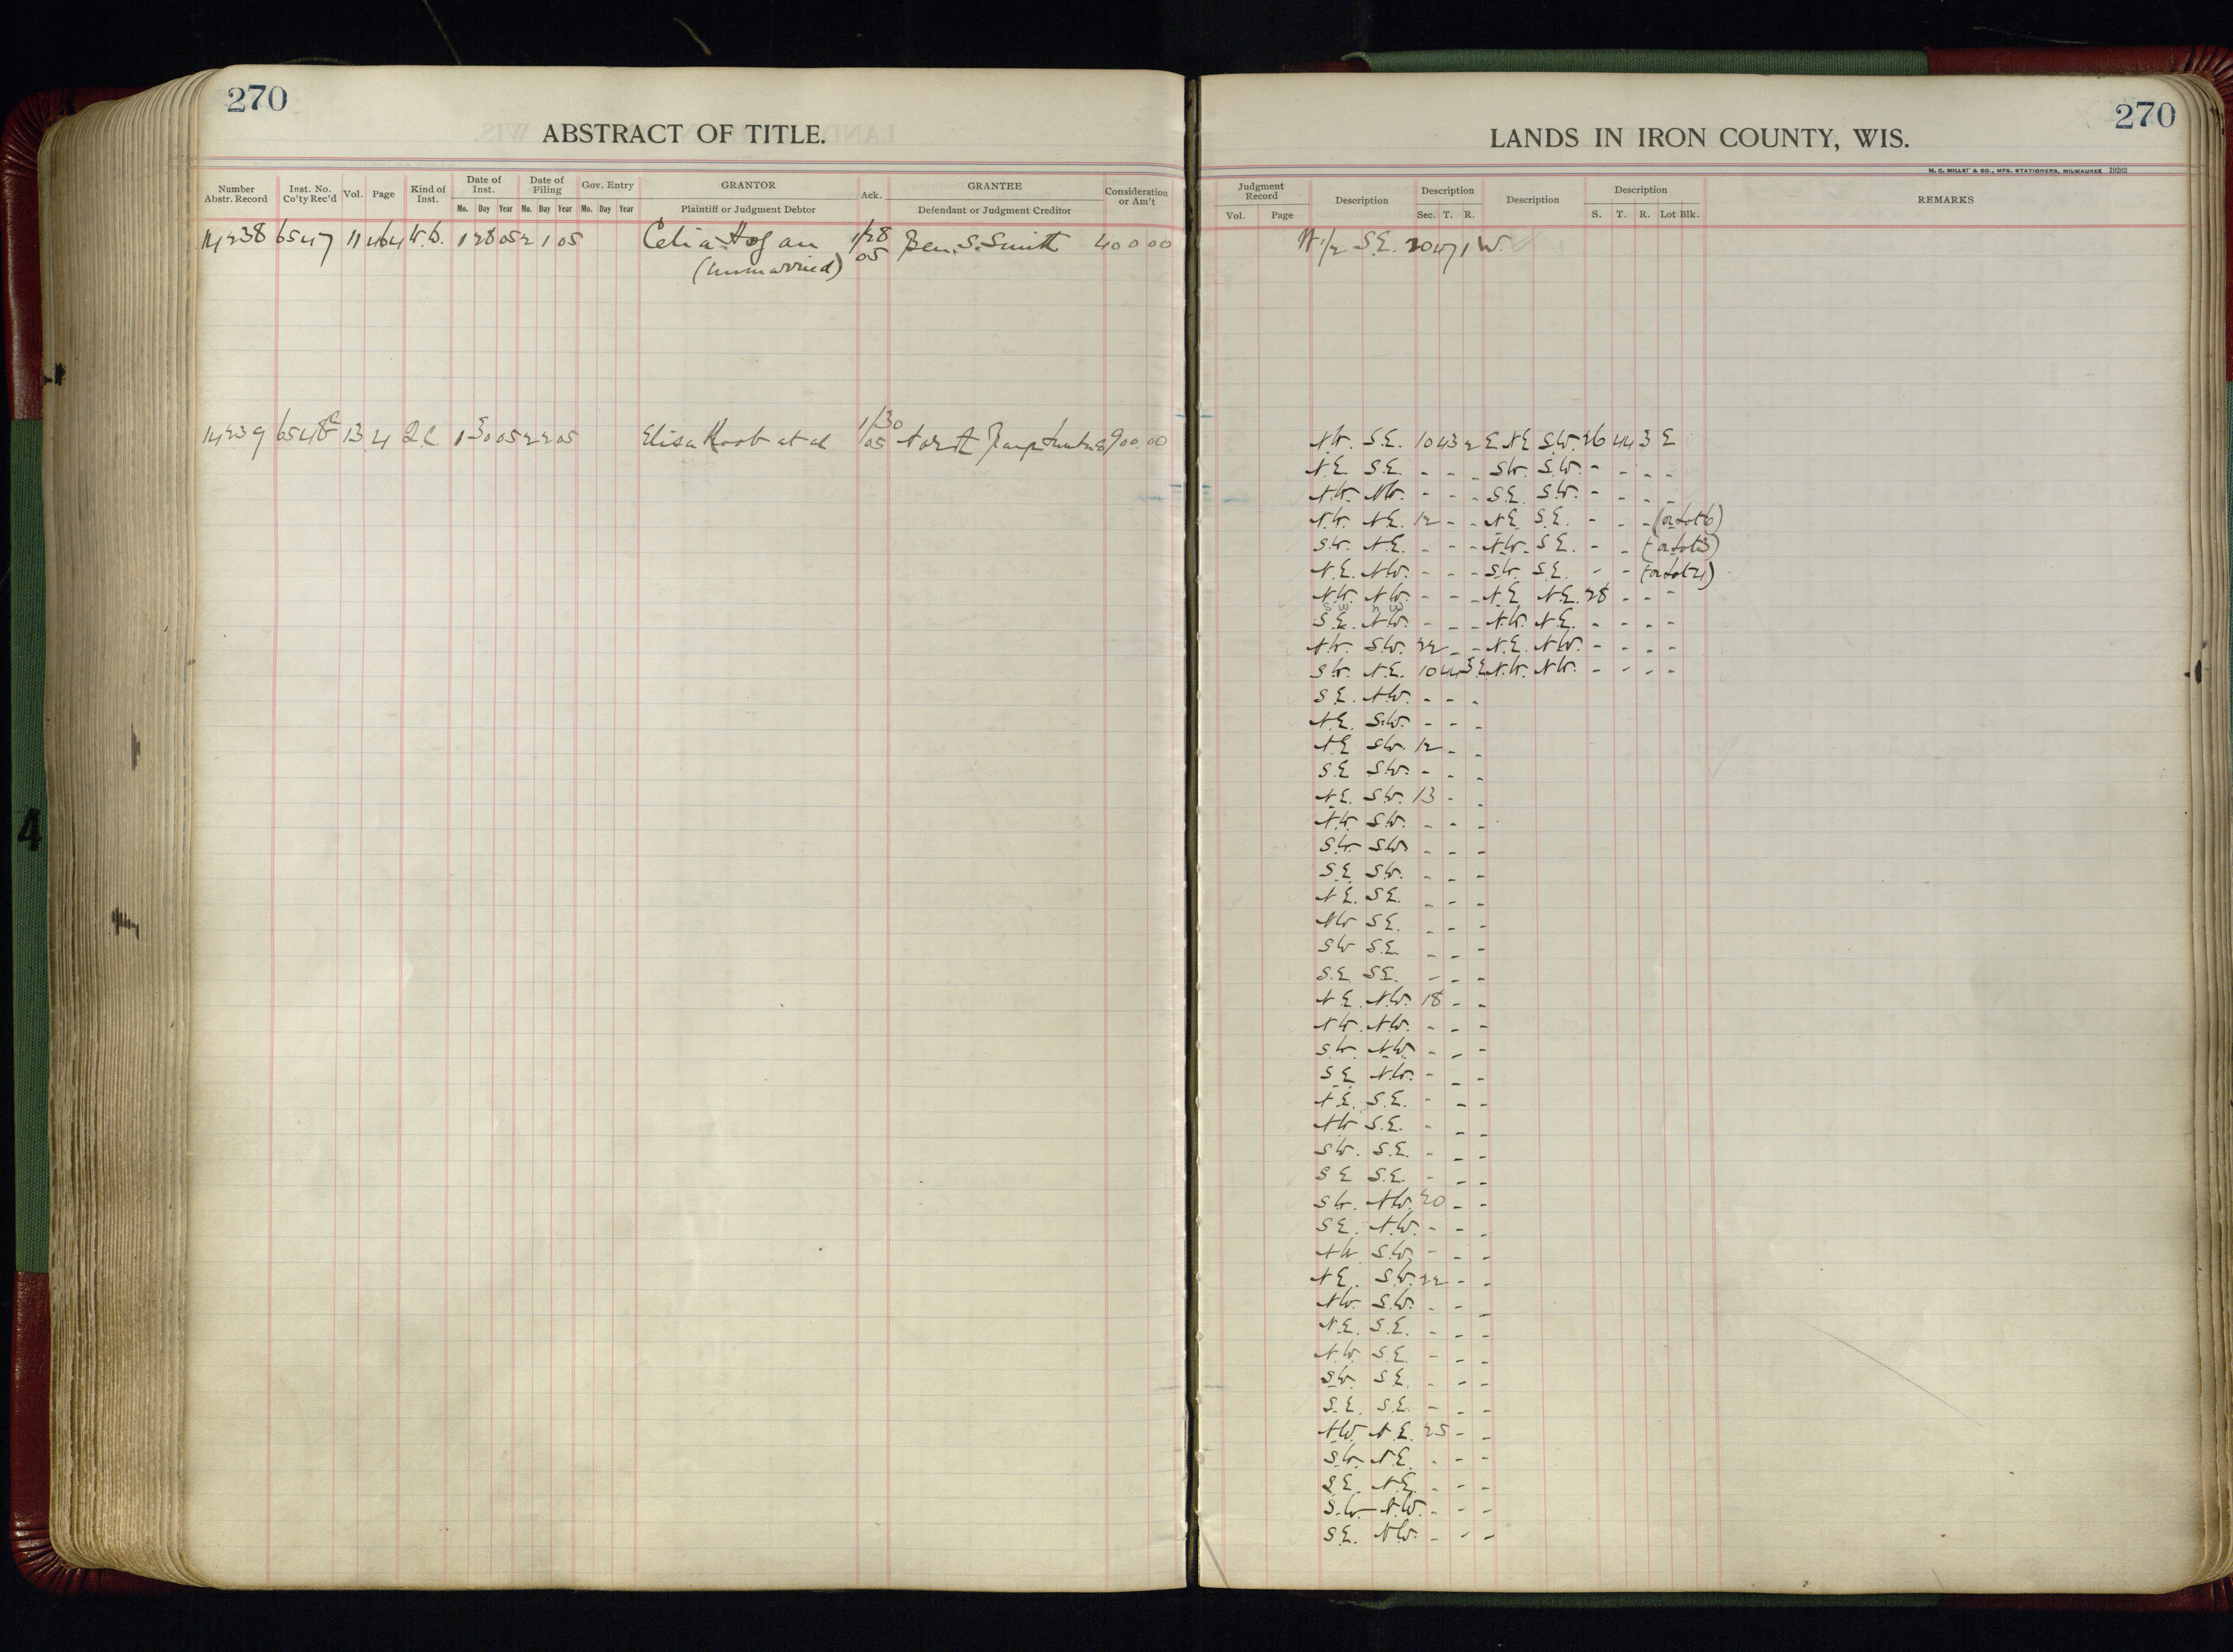 270
ABSTRACT OF TITLE.
Number Abstr. Record Inst. No. Co'ty Rec'd Vol. Page Kind of Inst. Date of Inst. Date of Filing Gov. Entry GRANTOR Ack. GRANTEE Consideration or Am't
Mo. Day Year Mo. Day Year Mo. Day Year Plaintiff or Judgment Debtor Defendant or Judgment Creditor
14238 6547 11 464 W.D. 1 28 05 2 1 05 Celia Hogan 1/28 Ben. S. Smith 400 00
(unmarried) 05
1/30
14239 6548 13 4 Q.C. 1 30 05 2 2 05 Elisa Koob et al 05 900.00
270
LANDS IN IRON COUNTY, WIS.
H. C. MILLER & CO., MFG. STATIONERS, MILWAUKEE 19282
Judgment Record Description Description Description Description REMARKS
Vol. Page Sec. T. R. S. T. R. Lot Blk.
N 1/2 S.E. 20 47 1 W.
N.W. S.E. 10 43 2 E N.E. S.W. 26 44 3 E
N.E. S.E. - - - S.W. S.W. - - - -
N.W. N.W. - - - S.E. S.W. - - - -
N.W. N.E. 12 - - N.E. S.E. - - - (or Lot 6)
S.W. N.E. - - - N.W. S.E. - - (or Lot 3)
N.E. N.W. - - - S.W. S.E. - - (or Lot 4)
N.W. N.W. - - - N.E. N.E. 28 - - -
S W N W
S.E. N.W. - - - N.W. N.E. - - - -
N.W. S.W. 22 - - N.E. N.W. - - - -
S.W. N.E. 10 44 3 E N.W. N.W. - - - -
S.E. N.W. - - -
N.E. S.W. - - -
N.E. S.W. 12 - -
S.E. S.W. - - -
N.E. S.W. 13 - -
N.W. S.W. - - -
S.W. S.W. - - -
S.E. S.W. - - -
N.E. S.E. - - -
N.W. S.E. - - -
S.W. S.E. - - -
S.E. S.E. - - -
N.E. N.W. 18 - -
N.W. N.W. - - -
S.W. N.W. - - -
S.E. N.W. - - -
N.E. S.E. - - -
N.W. S.E. - - -
S.W. S.E. - - -
S.E. S.E. - - -
S.W. N.W. 20 - -
S.E. N.W. - - -
N.W. S.W. - - -
N.E. S.W. 22 - -
N.W. S.W. - - -
N.E. S.E. - - -
N.W. S.E. - - -
S.W. S.E. - - -
S.E. S.E. - - -
N.W. N.E. 25 - -
S.W. N.E. - - -
S.E. N.E. - - -
S.W. N.W. - - -
S.E. N.W. - - -
4